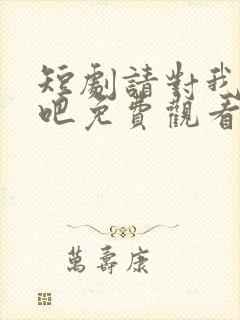 短劇請對我
吧免費觀看
萬壽康